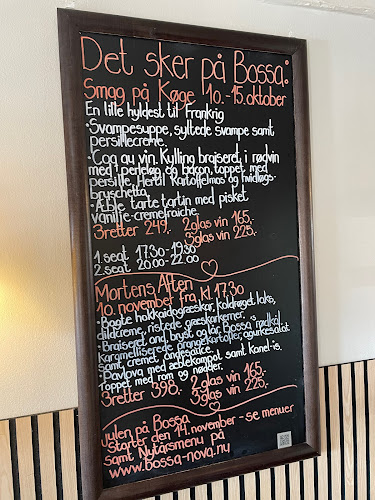 Det sker på Bossa:
Smag på Køge 10.-15.oktober
En lille hyldest til Frankrig
• Svampesuppe, syltede svampe samt
persillecreme.
• Coq au vin. Kylling braiseret i rødvin
med perleløg og bacon, toppet med
persille. Hertil Kartoffelmos og hvidløgs-
bruschetta.
• Æble tarte tartin med pisket
vanilje-cremefraiche.
3retter 249,- 2glas vin 165,-
3glas vin 225,-
1. seat 17.30-19.30
2. seat 20.00-22.00
Mortens Aften
10. november fra kl 17.30
• Bagte hokkaidogræskar, koldrøget laks,
dildcreme, ristede græskarkerner.
• Braiseret and, bryst og lår, Bossa's rødkål,
karamelliserede drangekartofler, agurkesalat
samt cremet andesauce.
• Pavlova med æblekompot samt Kanel-is.
Toppet med rom og nødder.
3retter 398,- 2 glas vin 165,-
3 glas vin 225,-
Julen på Bossa
starter den 14. november - se menuer
samt Nytårsmenu på
www.bossa-nova.nu